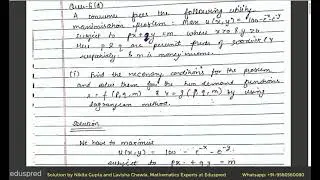 Ques-6(a)
A consumer faces the following utility
maximisation problem: max u(x,y) = 100-e⁻ˣ-e⁻ʸ
subject to px+qy = m where x≥0 & y≥0
Here p & q are per unit prices of goods x & y
respectively & m is money income.
(i) Find the necessary conditions for the problem
and solve them for the two demand functions
x = f(p,q,m) & y = g(p,q,m) by using
lagrangean method.
Solution
We have to maximise
u(x,y) = 100 - e⁻ˣ - e⁻ʸ.
subject to px + qy = m
eduspred
Solution by Nikita Gupta and Lavisha Chawla, Mathematics Experts at Eduspred
Whatsapp: +91-9560560080